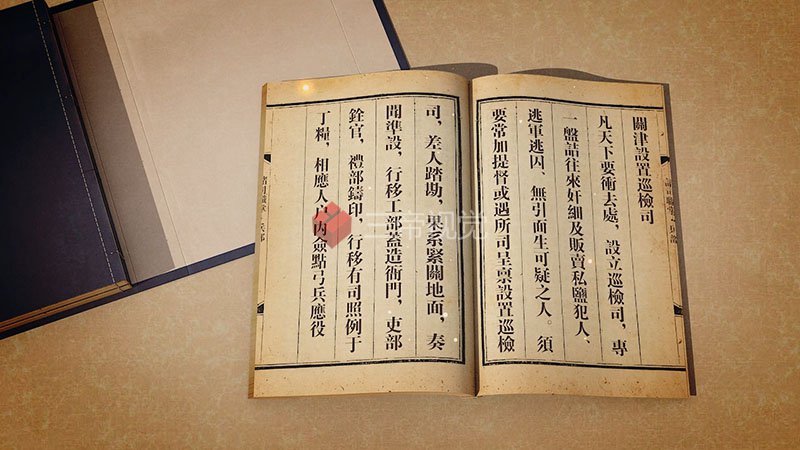 關津設置巡檢司
凡天下要衝去處，設立巡檢司，專
一盤詰往來奸細及販賣私鹽犯人、
逃軍逃囚、無引面生可疑之人。須
要常加提督或遇所司呈禀設置巡檢
司，差人踏勘，果系緊關地面，奏
聞準設，行移工部蓋造衙門，吏部
銓官，禮部鑄印，行移有司照例于
丁糧，相應人户内僉點弓兵應役
三帝视觉